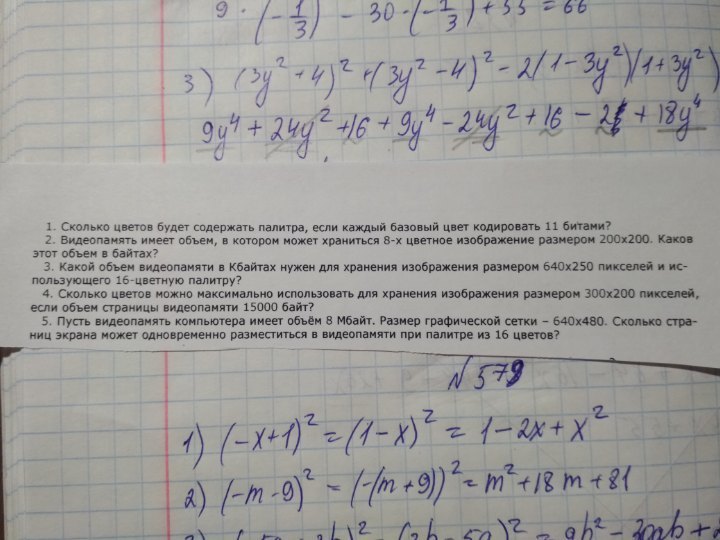 9·(-1/3) - 30·(-1/3) + 33 = 66
3) (3y²+4)² + (3y²-4)² - 2(1-3y²)(1+3y²)
9y⁴ + 24y² + 16 + 9y⁴ - 24y² + 16 - 2 + 18y⁴
1. Сколько цветов будет содержать палитра, если каждый базовый цвет кодировать 11 битами?
2. Видеопамять имеет объем, в котором может храниться 8-х цветное изображение размером 200x200. Каков
этот объем в байтах?
3. Какой объем видеопамяти в Кбайтах нужен для хранения изображения размером 640x250 пикселей и ис-
пользующего 16-цветную палитру?
4. Сколько цветов можно максимально использовать для хранения изображения размером 300x200 пикселей,
если объем страницы видеопамяти 15000 байт?
5. Пусть видеопамять компьютера имеет объём 8 Мбайт. Размер графической сетки – 640x480. Сколько стра-
ниц экрана может одновременно разместиться в видеопамяти при палитре из 16 цветов?
№ 579
1) (-x+1)² = (1-x)² = 1-2x+x²
2) (-m-9)² = (-(m+9))² = m²+18m+81
)² = (3b-5a)² = 9b² - 30ab +